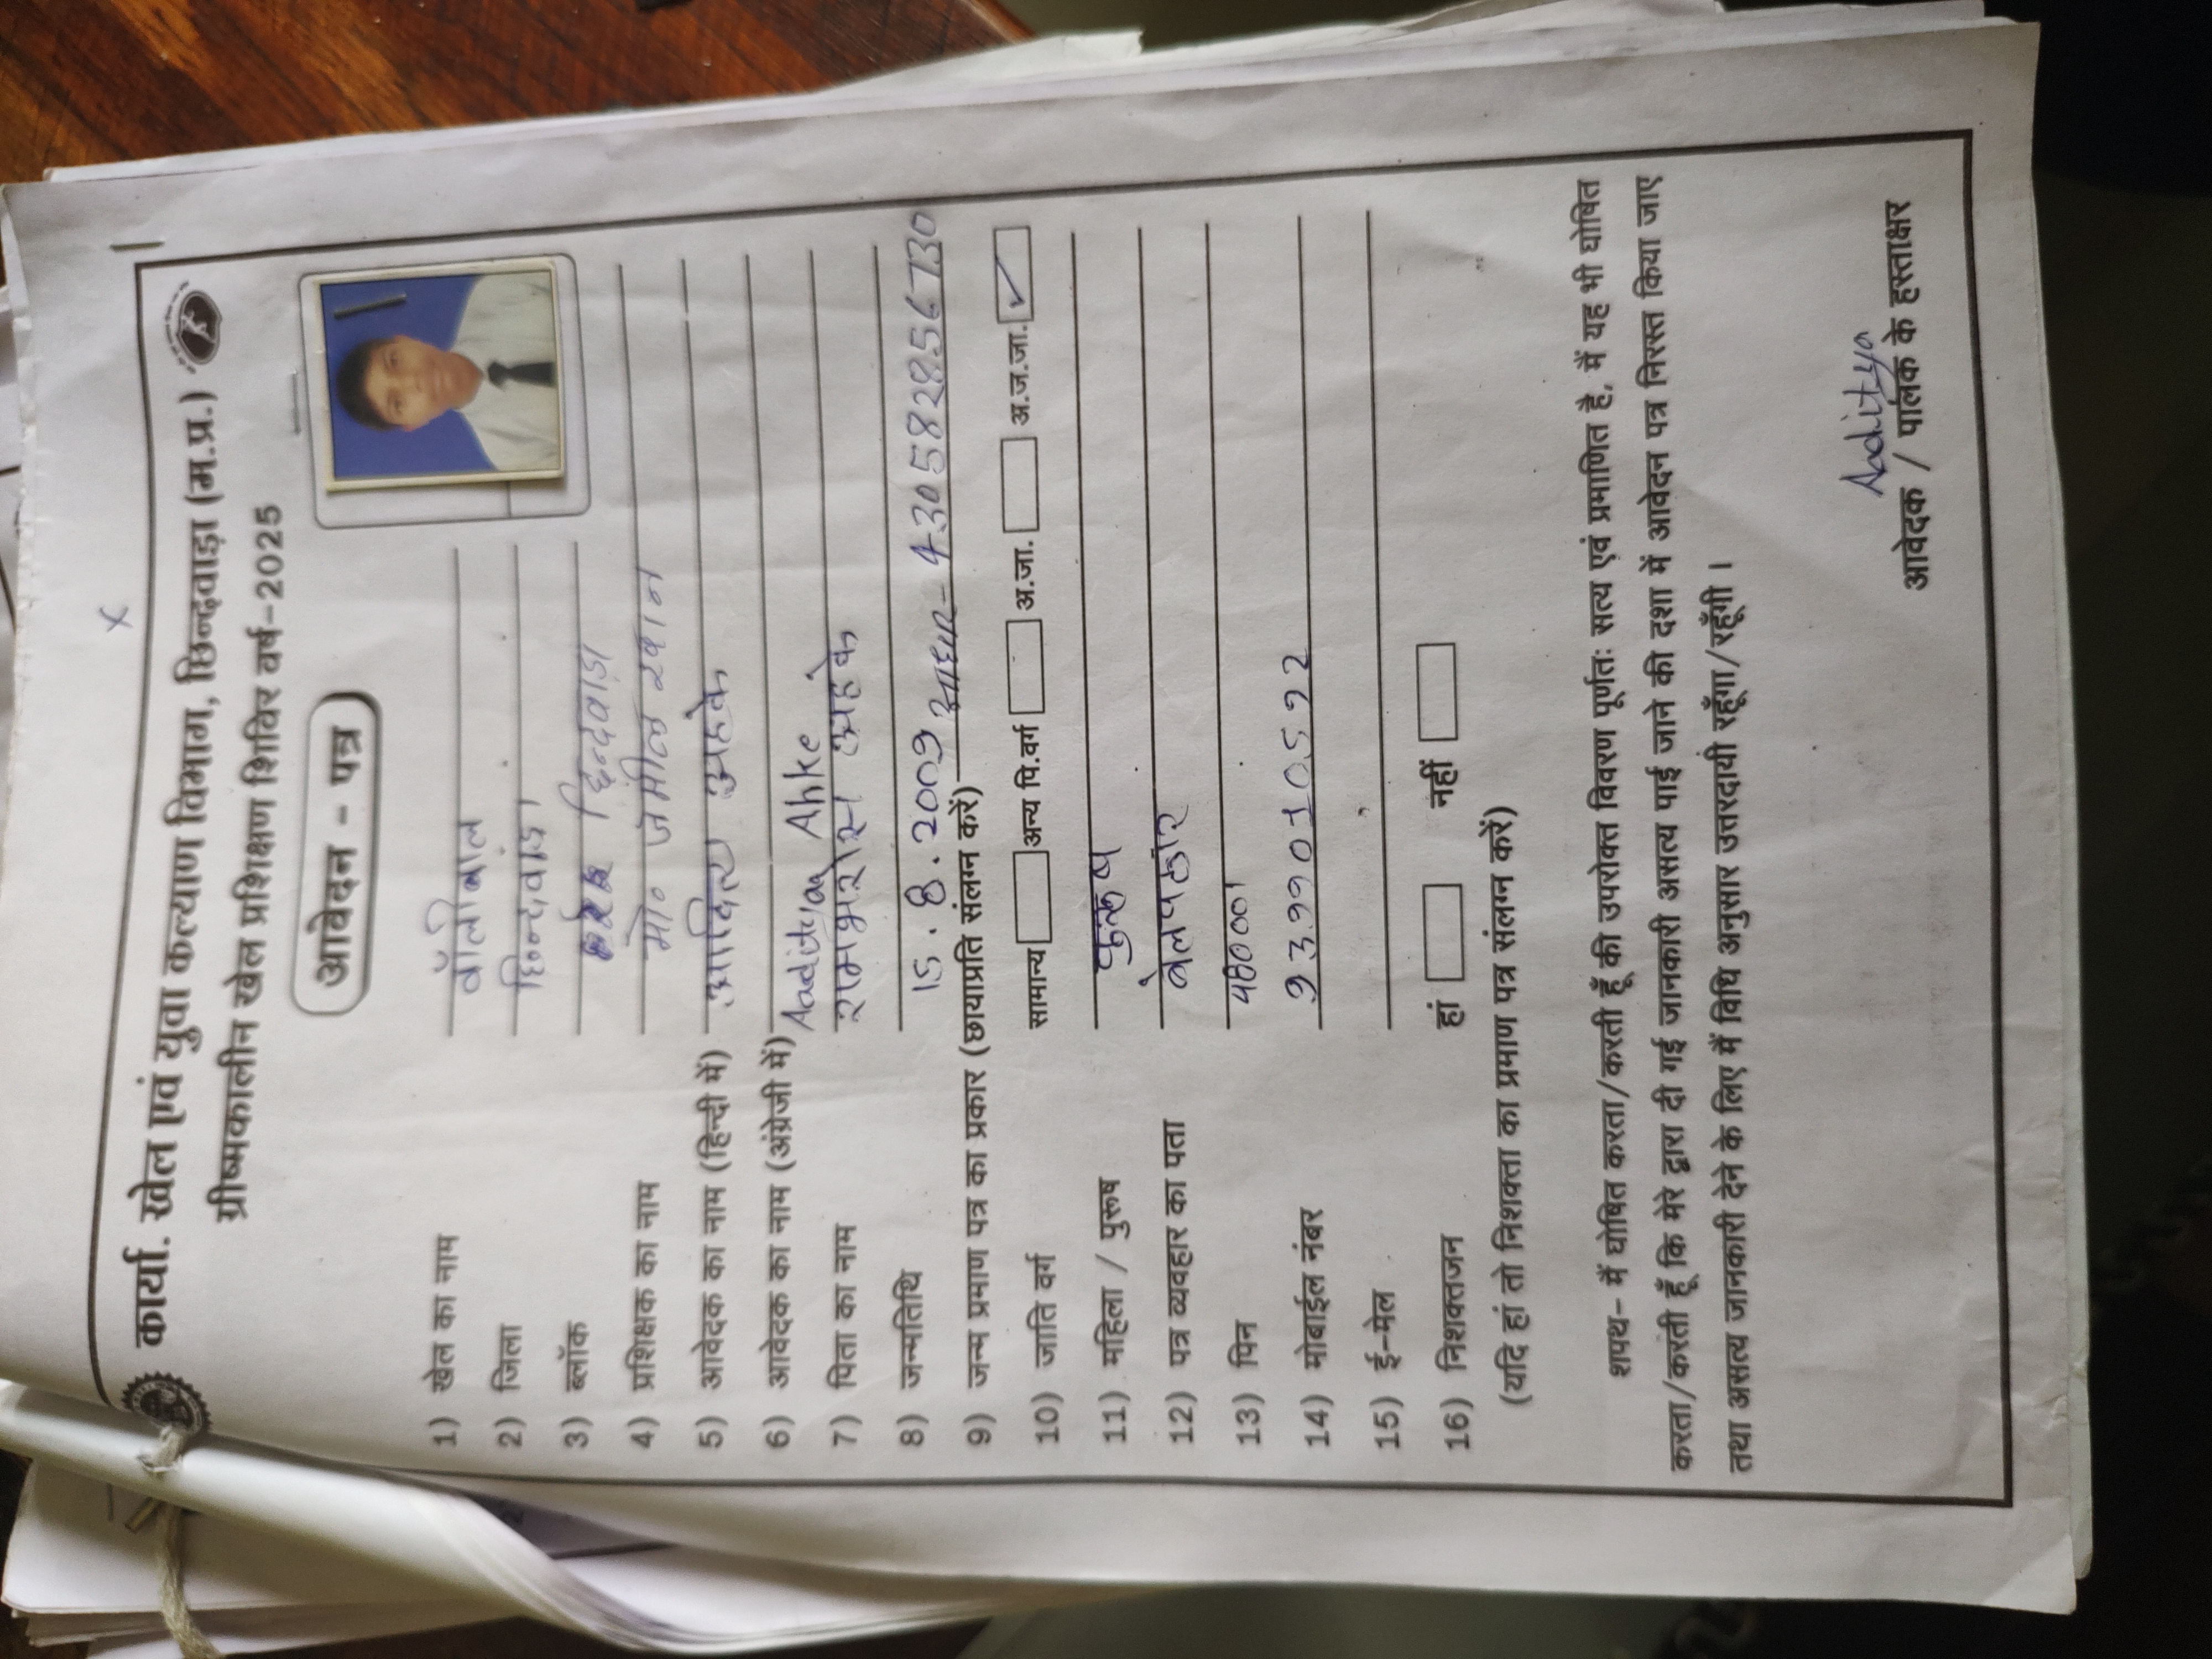 कार्या. खेल एवं युवा कल्याण विभाग, छिन्दवाड़ा (म.प्र.)
ग्रीष्मकालीन खेल प्रशिक्षण शिविर वर्ष-2025
आवेदन - पत्र
1) खेल का नाम वॉलीबाल
2) जिला छिन्दवाड़ा
3) ब्लॉक छिन्दवाड़ा
4) प्रशिक्षक का नाम मो० जमील खान
5) आवेदक का नाम (हिन्दी में) आदित्य अहके
6) आवेदक का नाम (अंग्रेजी में) Aaditya Ahke
7) पिता का नाम रामभरोस अहके
8) जन्मतिथि 15.8.2009
9) जन्म प्रमाण पत्र का प्रकार (छायाप्रति संलग्न करें) आधार - 430582856730
10) जाति वर्ग सामान्य अन्य पि.वर्ग अ.जा. अ.ज.जा. ✓
11) महिला / पुरूष पुरूष
12) पत्र व्यवहार का पता
13) पिन 480001
14) मोबाईल नंबर 9399010592
15) ई-मेल
16) निशक्तजन हां नहीं
(यदि हां तो निशक्तता का प्रमाण पत्र संलग्न करें)
शपथ- मैं घोषित करता/करती हूँ की उपरोक्त विवरण पूर्णतः सत्य एवं प्रमाणित है, मैं यह भी घोषित
करता/करती हूँ कि मेरे द्वारा दी गई जानकारी असत्य पाई जाने की दशा में आवेदन पत्र निरस्त किया जाए
तथा असत्य जानकारी देने के लिए मैं विधि अनुसार उत्तरदायी रहूँगा/रहूँगी ।
Aaditya
आवेदक / पालक के हस्ताक्षर